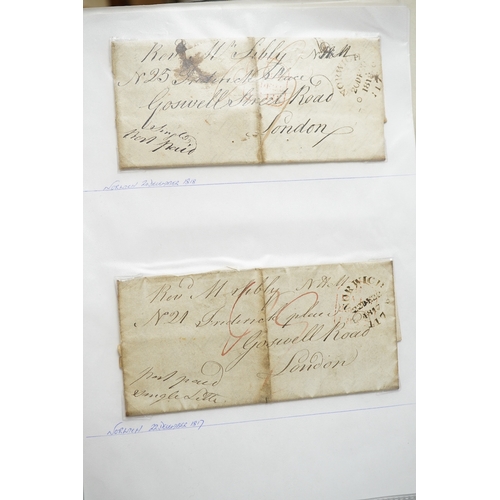 Revd Mr Sibly N.H.M
No 25 Frederick Place
Goswell Street Road
London
Single
Post Paid
NORWICH DECEMBER 1818
Revd Mr Sibly N.H.M
No 21 Frederick place
Goswell Road
London
post paid
single Letter
NORWICH
1817
117
NORWICH 22 DECEMBER 1817